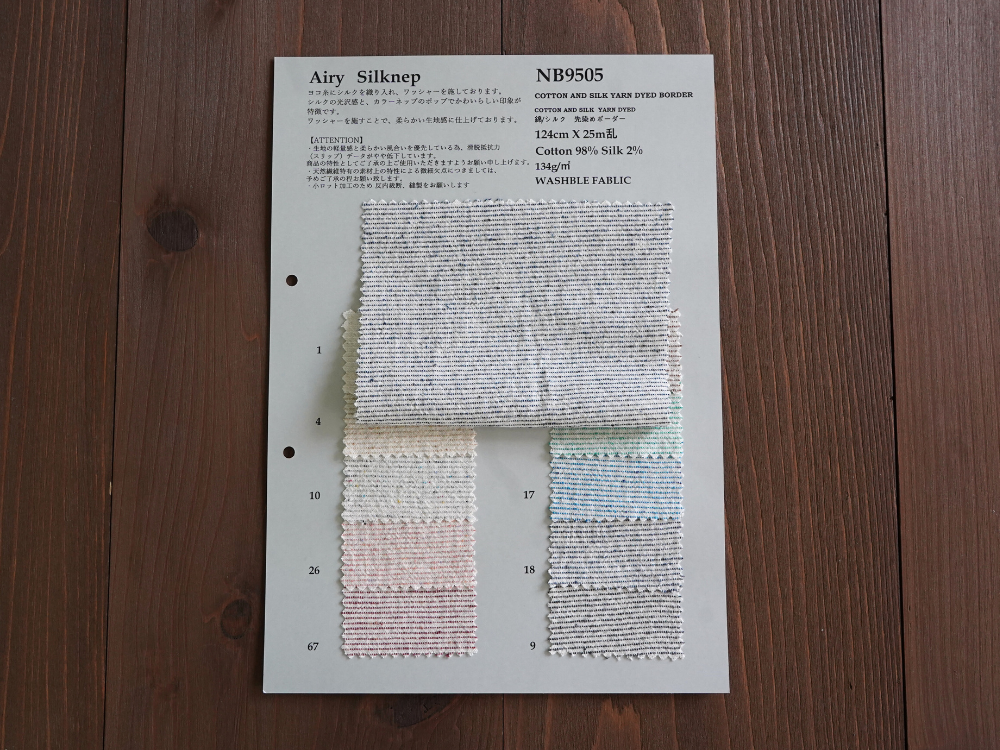 Airy Silknep
ヨコ糸にシルクを織り入れ、ワッシャーを施しております。
シルクの光沢感と、カラーネップのポップでかわいらしい印象が
特徴です。
ワッシャーを施すことで、柔らかい生地感に仕上げております。
【ATTENTION】
・生地の軽量感と柔らかい風合いを優先している為、滑脱抵抗力
（スリップ）データがやや低下しています。
商品の特性としてご了承の上ご使用いただきますようお願い申し上げます。
・天然繊維特有の素材上の特性による微細欠点につきましては、
予めご了承の程お願い致します。
・小ロット加工のため 反内裁断、縫製をお願いします
NB9505
COTTON AND SILK YARN DYED BORDER
COTTON AND SILK YARN DYED
綿/シルク 先染めボーダー
124cm X 25m乱
Cotton 98% Silk 2%
134g/㎡
WASHBLE FABLIC
1
4
10
26
67
17
18
9